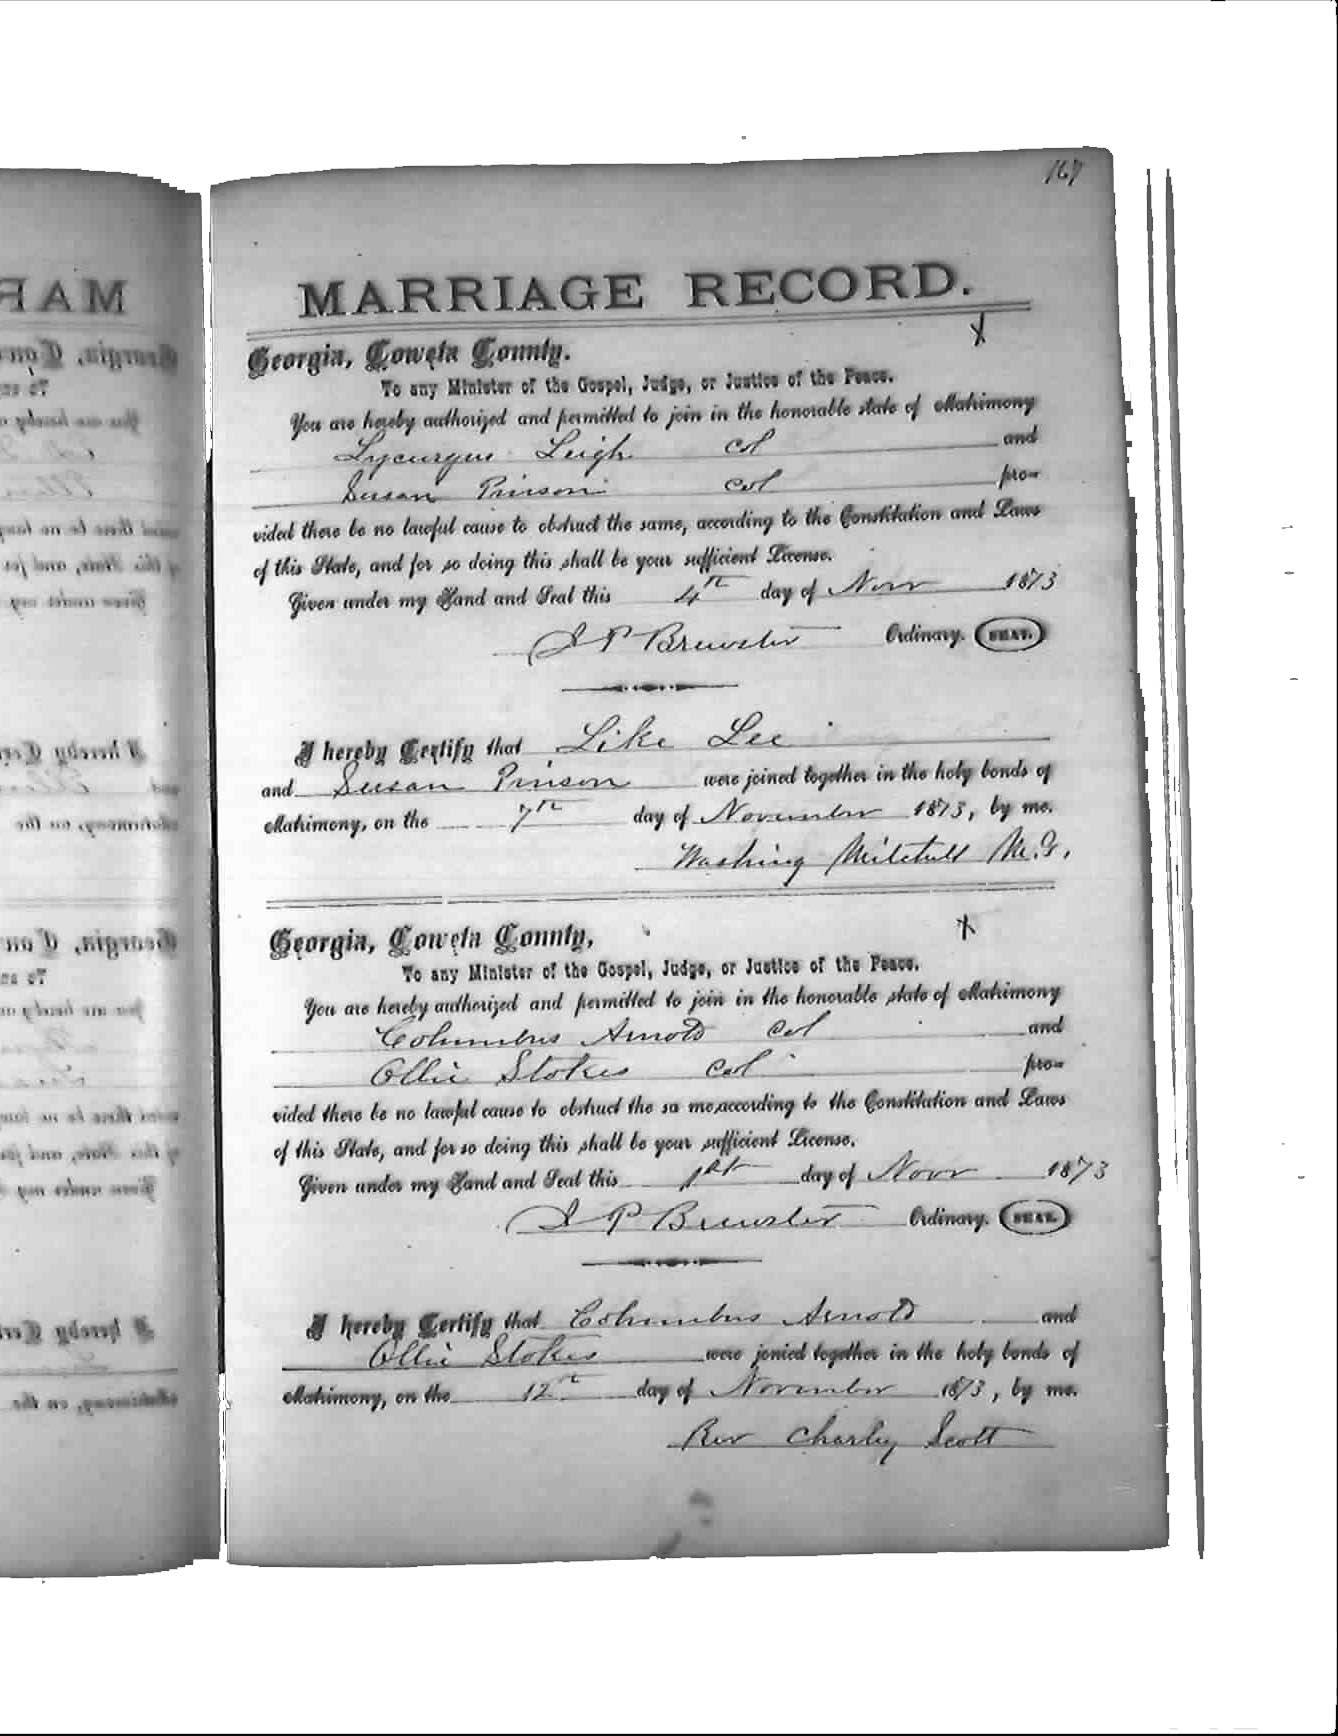 167
MARRIAGE RECORD.
Georgia, Coweta County.
To any Minister of the Gospel, Judge, or Justice of the Peace.
You are hereby authorized and permitted to join in the honorable state of Matrimony
Lycurgus Leigh col and
Susan Pinson col pro-
vided there be no lawful cause to obstruct the same, according to the Constitution and Laws
of this State, and for so doing this shall be your sufficient License.
Given under my Hand and Seal this 4th day of Novr 1873
J P Brewster Ordinary. SEAL.
I hereby Certify that Like Lee
and Susan Pinson were joined together in the holy bonds of
Matrimony, on the 7th day of November 1873, by me.
Washing Mitchell M.G.
Georgia, Coweta County,
To any Minister of the Gospel, Judge, or Justice of the Peace.
You are hereby authorized and permitted to join in the honorable state of Matrimony
Columbus Arnold col and
Ollie Stokes col pro-
vided there be no lawful cause to obstruct the sa me,according to the Constitution and Laws
of this State, and for so doing this shall be your sufficient License.
Given under my Hand and Seal this 1st day of Novr 1873
J P Brewster Ordinary. SEAL.
I hereby Certify that Columbus Arnold and
Ollie Stokes were jonied together in the holy bonds of
Matrimony, on the 12th day of November 1873, by me.
Rev Charley Scott